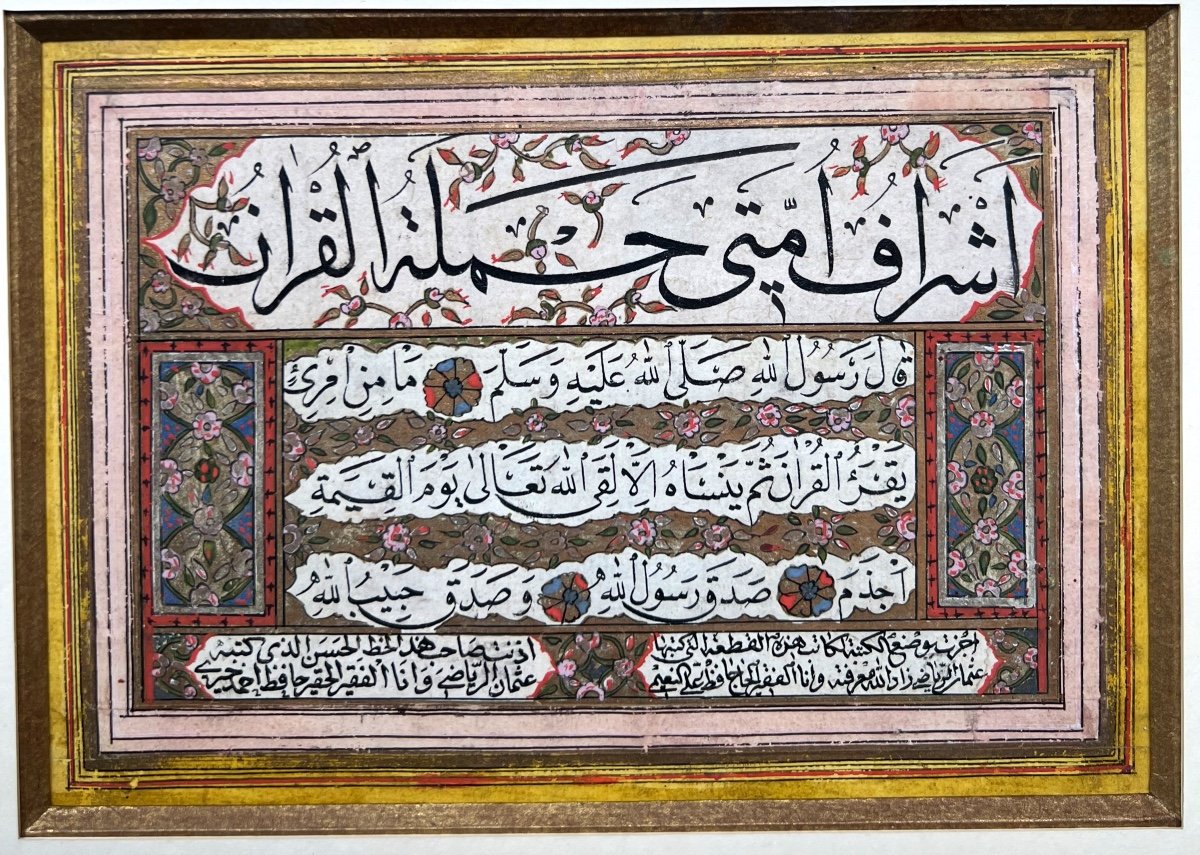 اَشْرَافُ اُمَّتِى حَمَلَةُ الْقُرْاٰنِ
قَالَ رَسُولُ اللهِ صَلَّى اللهُ عَلَيْهِ وَسَلَّمَ مَا مِنِ امْرِئٍ
يَقْرَؤُ الْقُرْاٰنَ ثُمَّ يَنْسَاهُ اِلَّا لَقِىَ اللهَ تَعَالٰى يَوْمَ الْقِيٰمَةِ
اَجْذَمَ صَدَقَ رَسُولُ اللهِ وَصَدَقَ حَبِيبُ اللهِ
اجزت بوضع الكتبة لكاتب هذه القطعة التى كتبها
عثمان الرياضى زاد الله معرفته وانا الفقير الحاج حافظ على النعيم
اذنت صاحب هذا الخط الحسن الذى كتبه
عثمان الرياضى وانا الفقير الحقير حافظ احمد خيرى